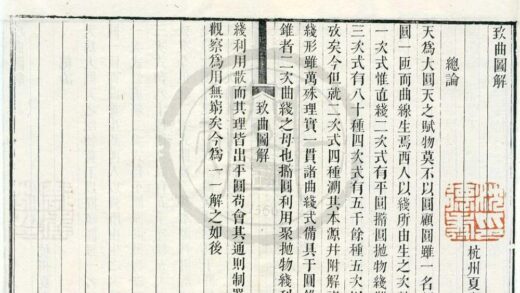 致曲圖解
總論
杭州夏
天爲大圓天之賦物莫不以圓顧圓雖一名
圓一匝而曲線生焉西人以綫所由生之次
一次式惟直綫二次式有平圓撱圓抛物綫
三次式有八十種四次式有五千餘種五次
攷矣今但就二次式四種溯其本源幷附解
綫形雖萬殊理實一貫諸曲綫式備具于圓
錐者二次曲綫之母也撱圓利用聚抛物綫利
致曲圖解
綫利用散而其理皆出平圓苟會其通則制
觀察爲用無窮矣今爲一一解之如後